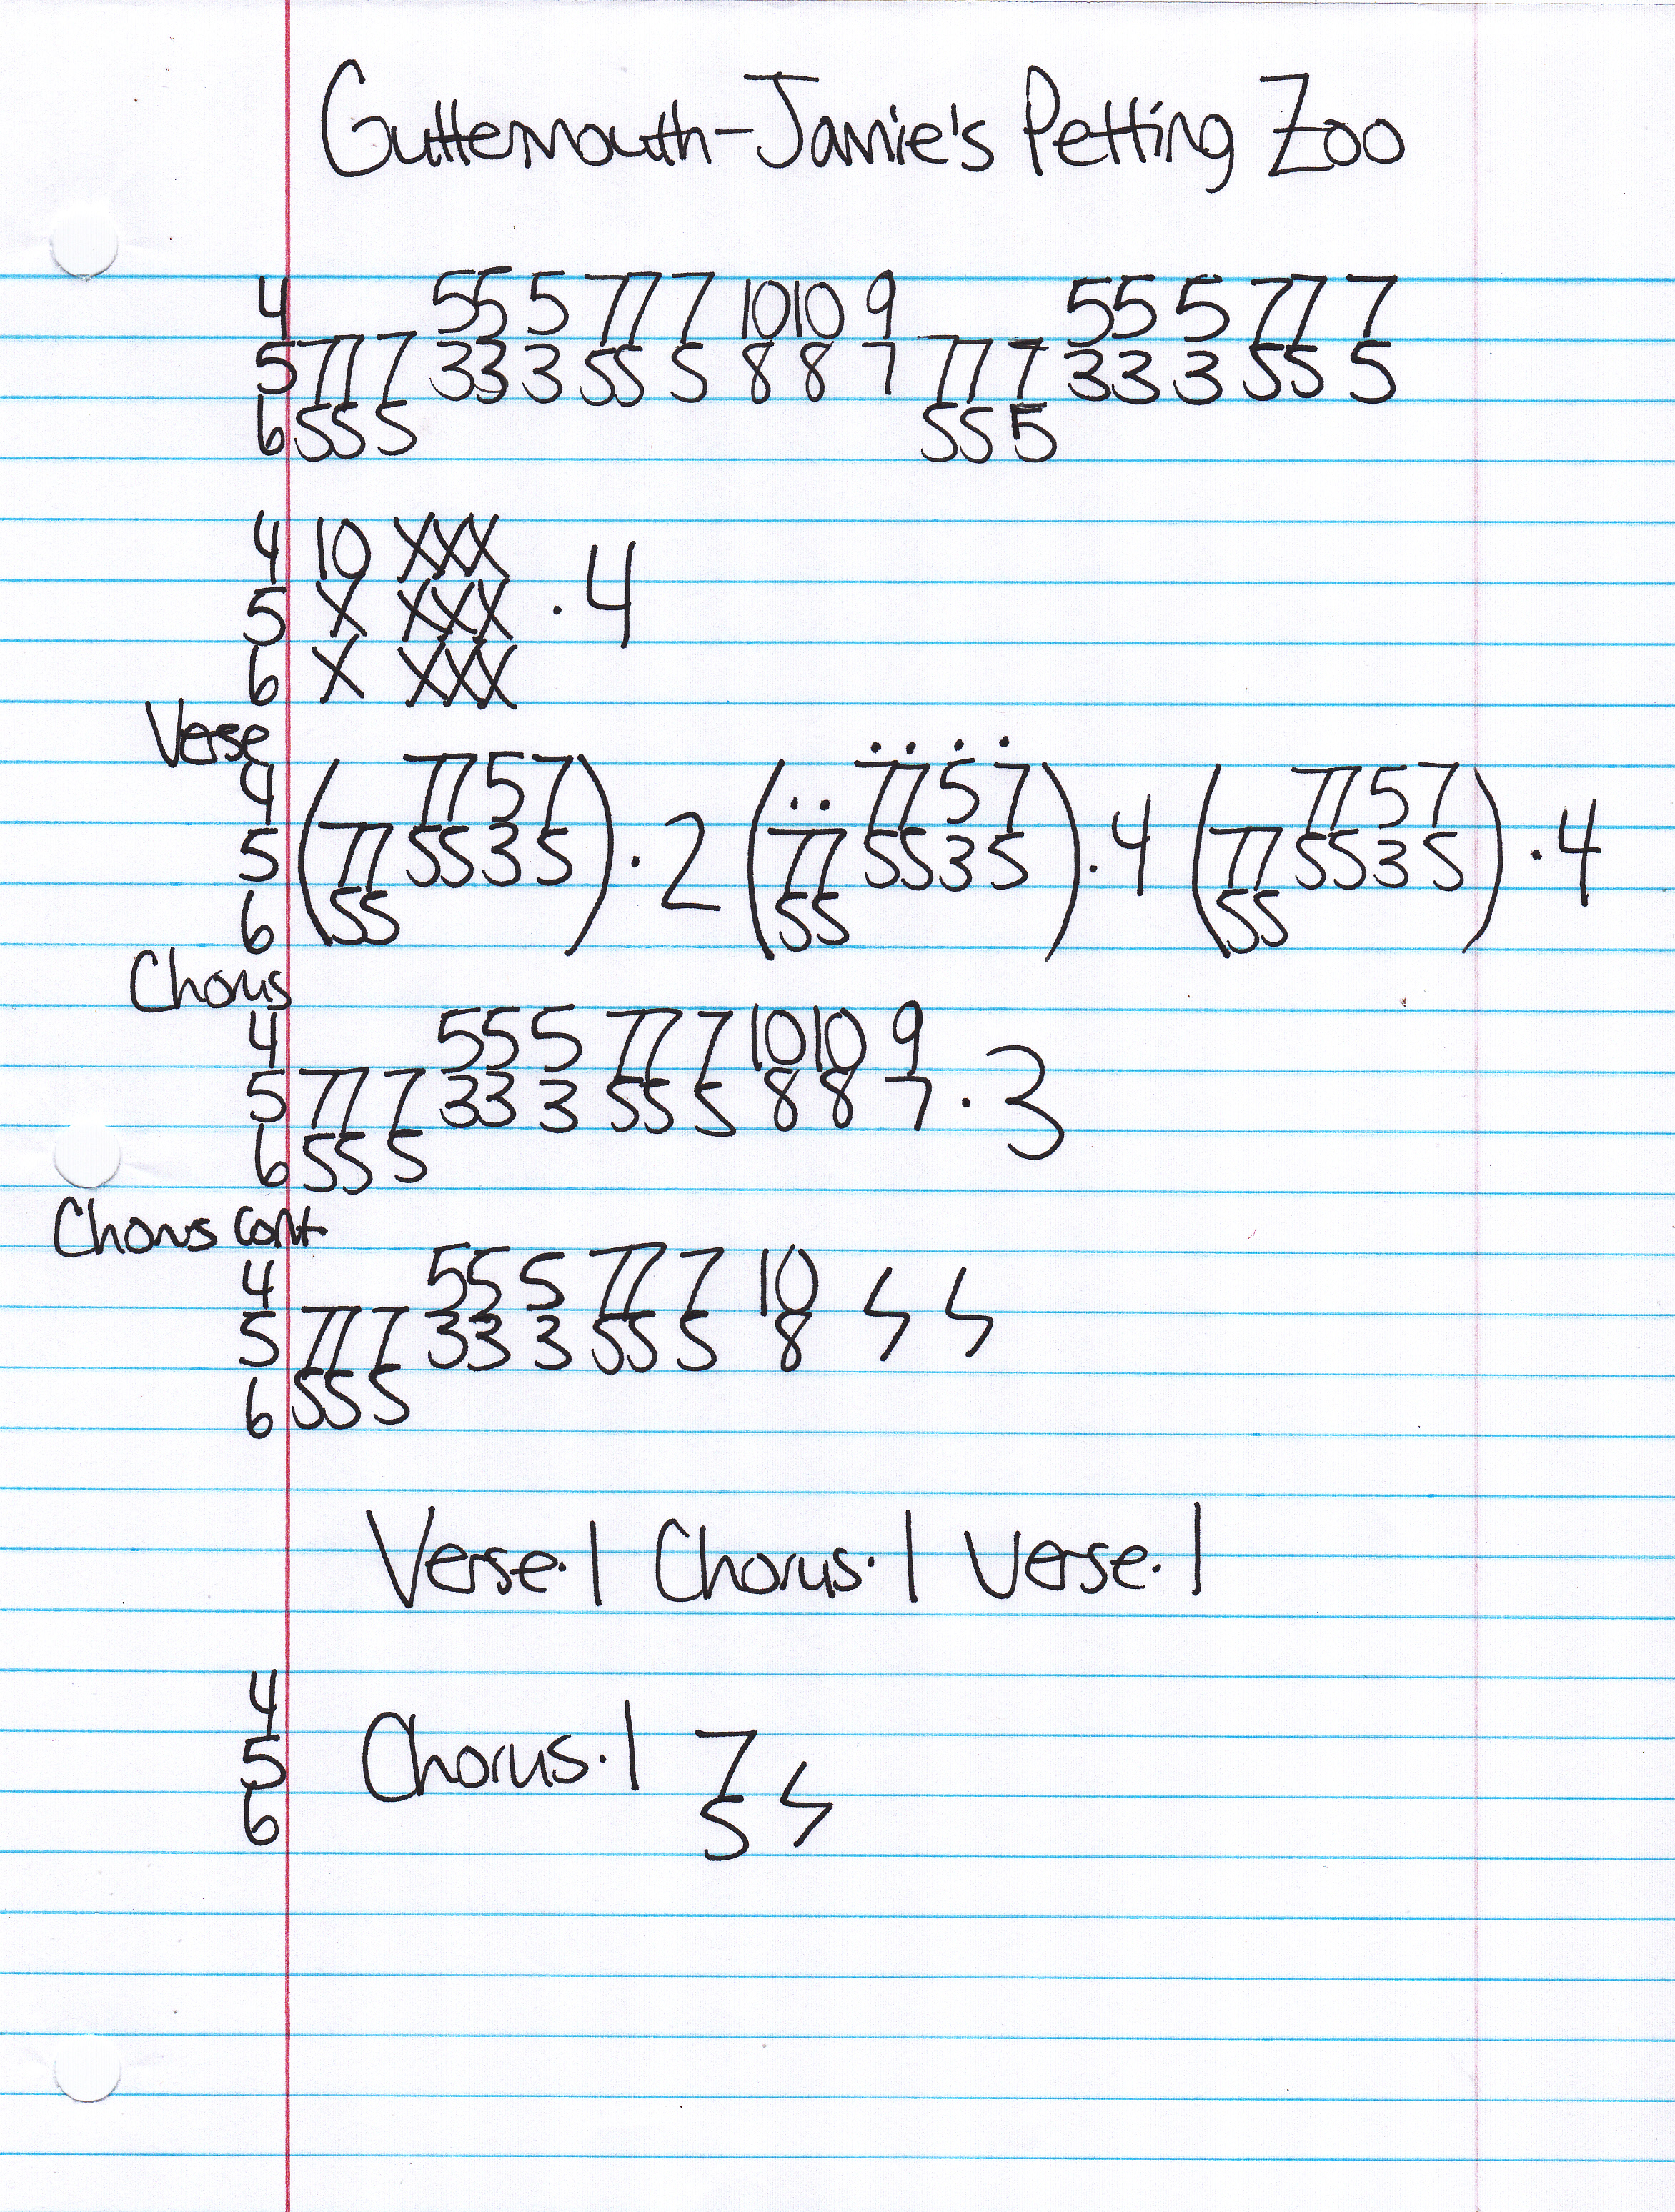 Guttermouth-Jamie's Petting Zoo
4 55 5 77 7 10 10 9 55 5 77 7
5 77 7 33 3 55 5 8 8 7 77 7 33 3 55 5
6 55 5 55 5
4 10 XXX
5 X XXX · 4
6 X XXX
Verse
4 ( 77 5 7 ) ( .. 77 5 7 ) ( 77 5 7 )
5 ( 77 55 3 5 ) · 2 ( 77 55 3 5 ) · 4 ( 77 55 3 5 ) · 4
6 ( 55 ) ( 55 ) ( 55 )
Chorus
4 55 5 77 7 10 10 9
5 77 7 33 3 55 5 8 8 7 · 3
6 55 5
Chorus cont
4 55 5 77 7 10
5 77 7 33 3 55 5 8
6 55 5
Verse·1 Chorus·1 Verse·1
4
5 Chorus·1 7
6 5